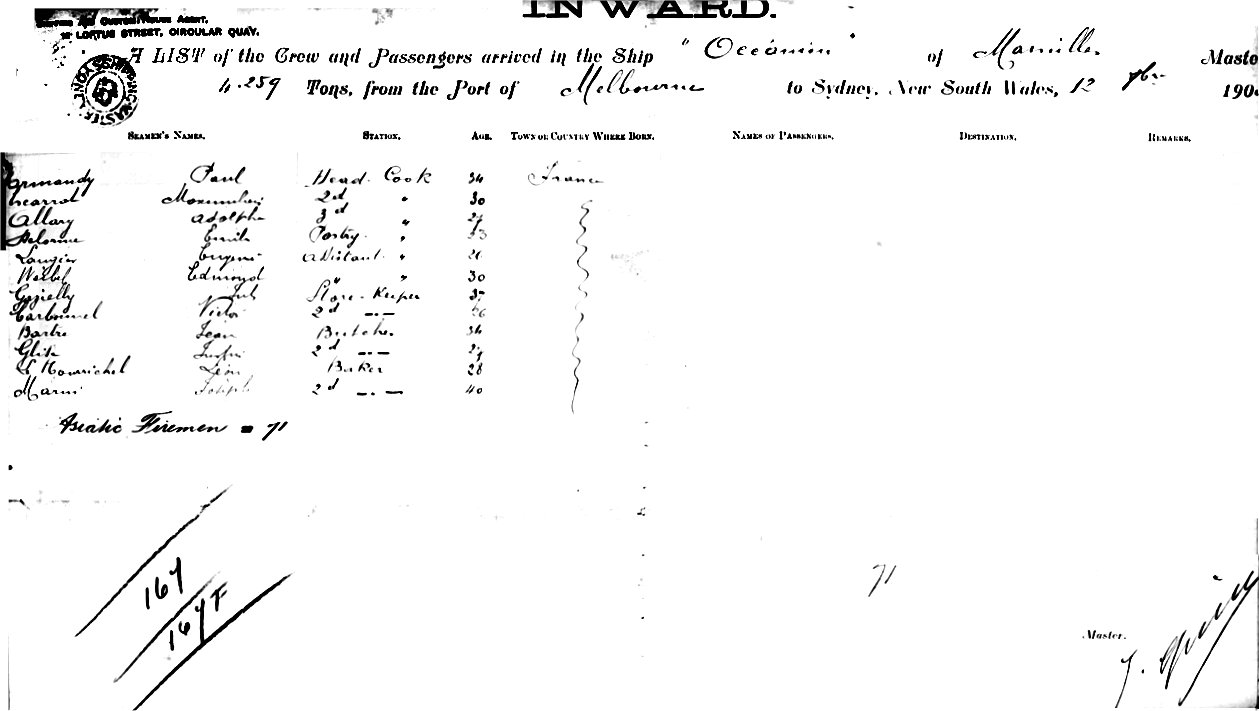 INWARD.
SHIPPING AND CUSTOM HOUSE AGENT,
LOFTUS STREET, CIRCULAR QUAY.
SHIPPING MASTER SYDNEY
A LIST of the Crew and Passengers arrived in the Ship "Océanien" of Marseilles Maste
4.259 Tons, from the Port of Melbourne to Sydney, New South Wales, 12 7bre 190
SEAMEN'S NAMES. STATION. AGE. TOWN OR COUNTRY WHERE BORN. NAMES OF PASSENGERS. DESTINATION. REMARKS.
Armandy Paul Head Cook 34 France
2d " 30
Allary Adolphe 3d "
Delorme Emile Pastry "
Laugier Eugene Assistant "
Weibel Edmond " " 30
Store-Keeper 37
Carbonnel Victor 2d -.-
Bastre Jean Butcher 34
2d -.-
Leon Baker 28
Marin Joseph 2d -.- 40
Asiatic Firemen = 71
167
167F
71
Master.